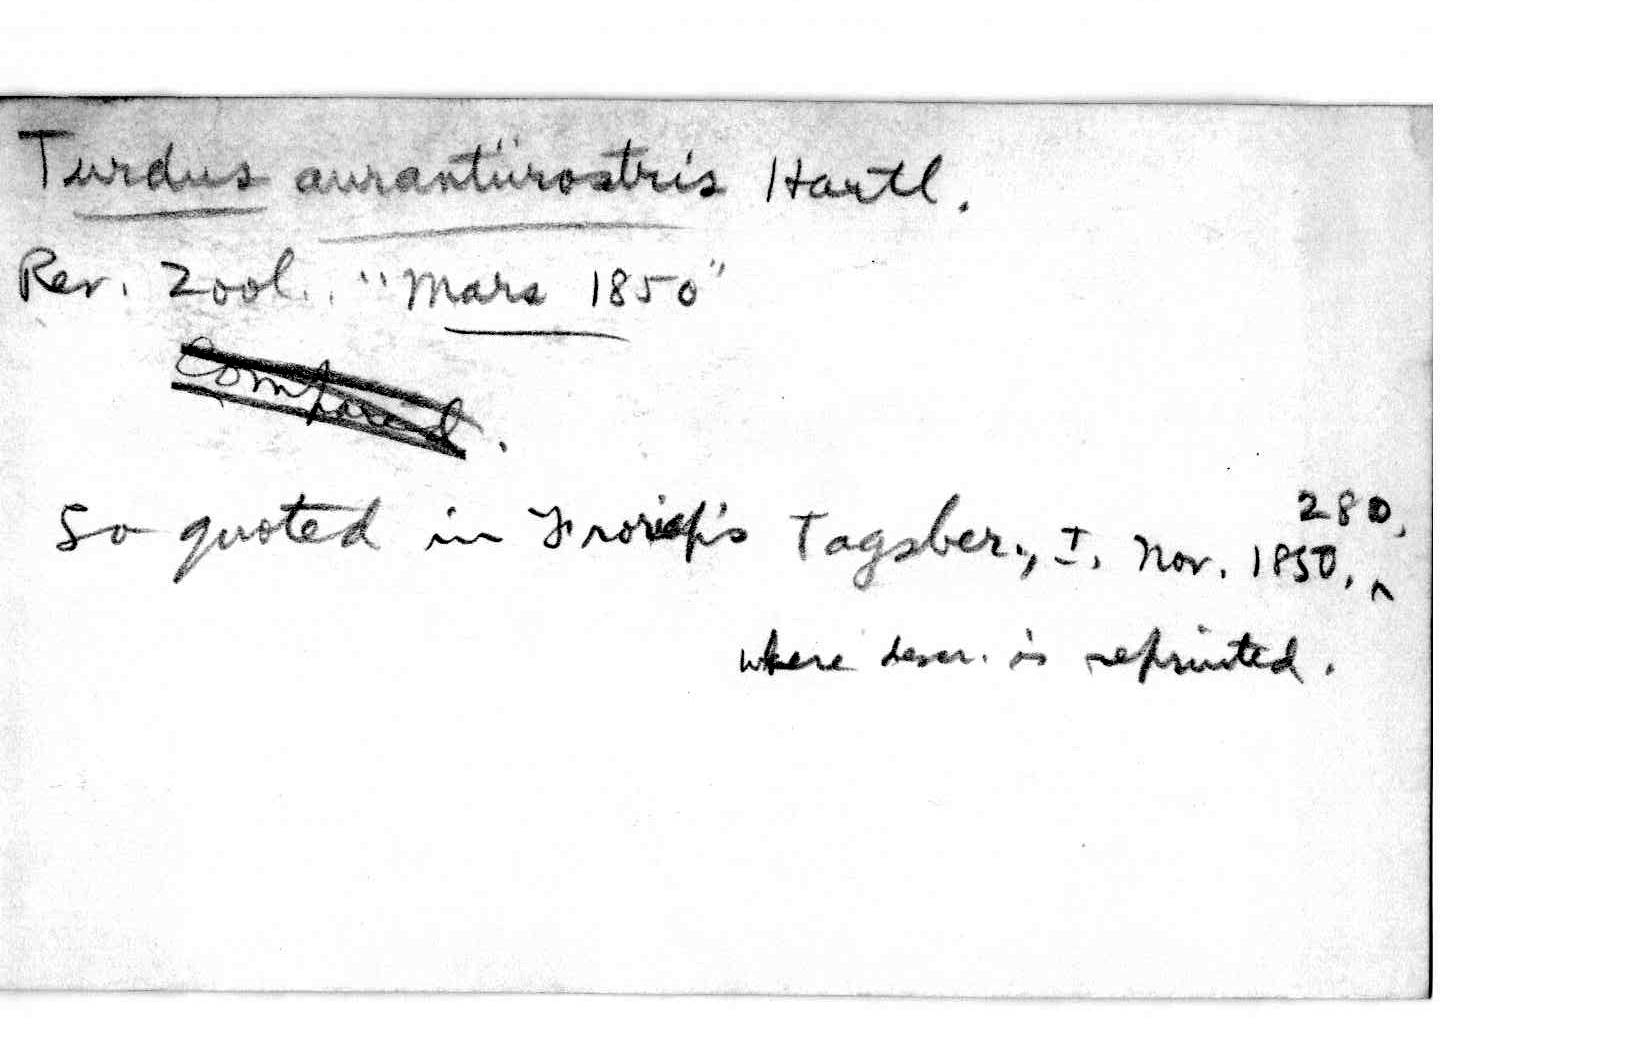 Turdus aurantiirostris Hartl.
Rev. Zool. "Mars 1850"
Compared.
So quoted in Froriep's Tagsber., I, Nov. 1850, 280,
where descr. is reprinted.